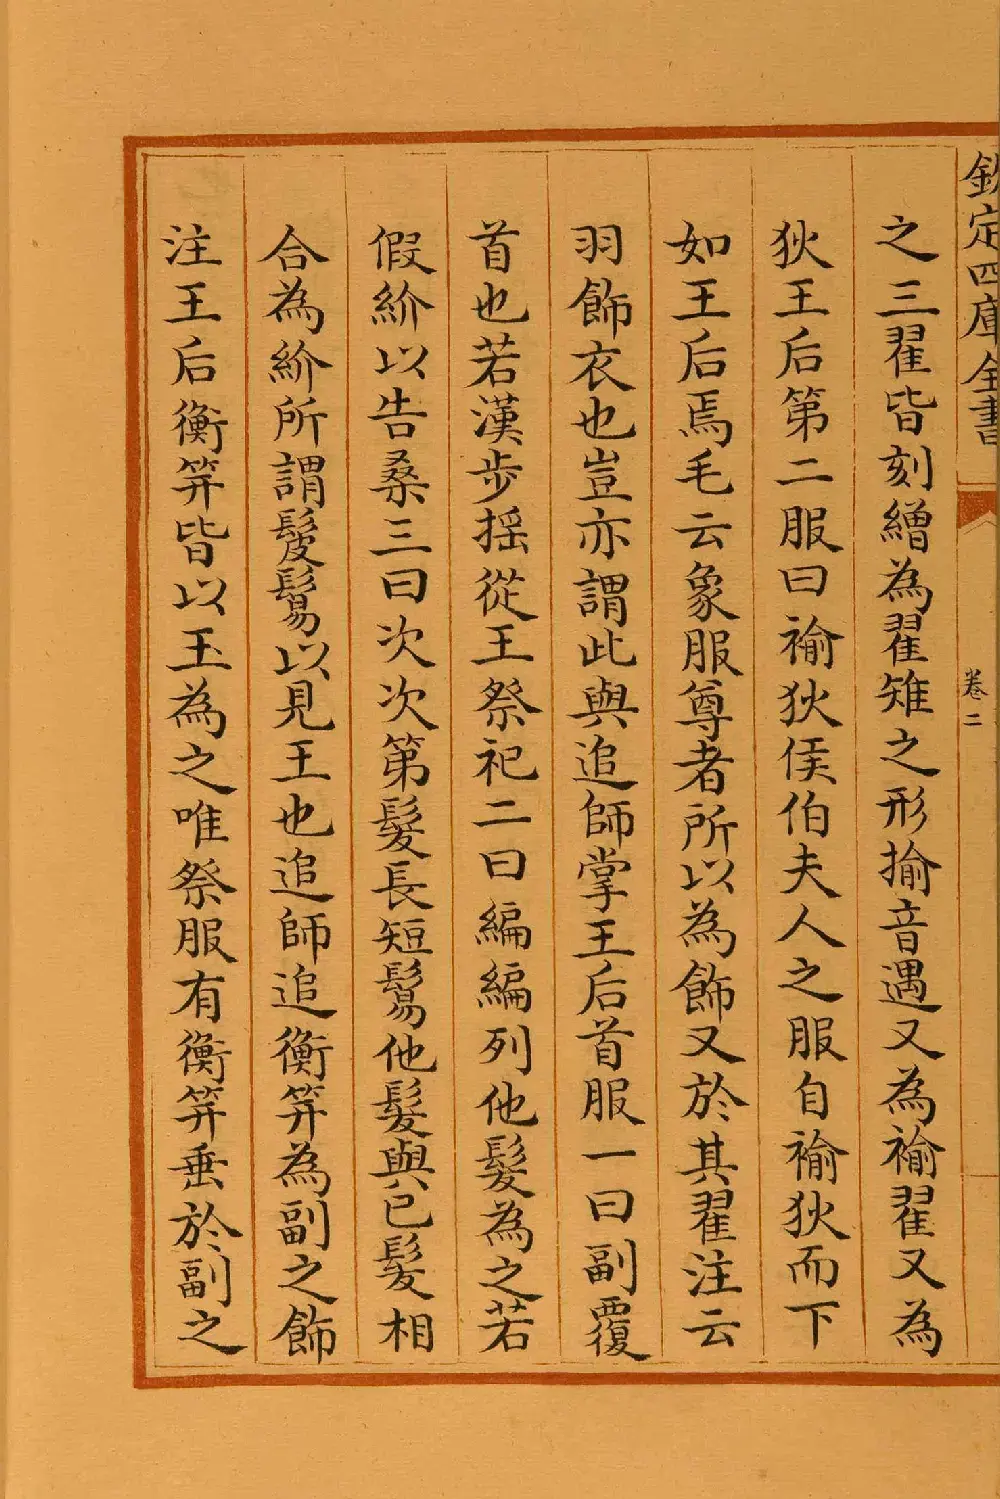 欽定四庫全書
卷二
之三翟皆刻繒為翟雉之形揄音遇又為褕翟又為
狄王后第二服曰褕狄侯伯夫人之服自褕狄而下
如王后焉毛云象服尊者所以為飾又於其翟注云
羽飾衣也豈亦謂此與追師掌王后首服一曰副覆
首也若漢步摇從王祭祀二曰編編列他髮為之若
假紒以告桑三曰次次第髮長短鬄他髮與已髮相
合為紒所謂髲鬄以見王也追師追衡笄為副之飾
注王后衡笄皆以玉為之唯祭服有衡笄垂於副之